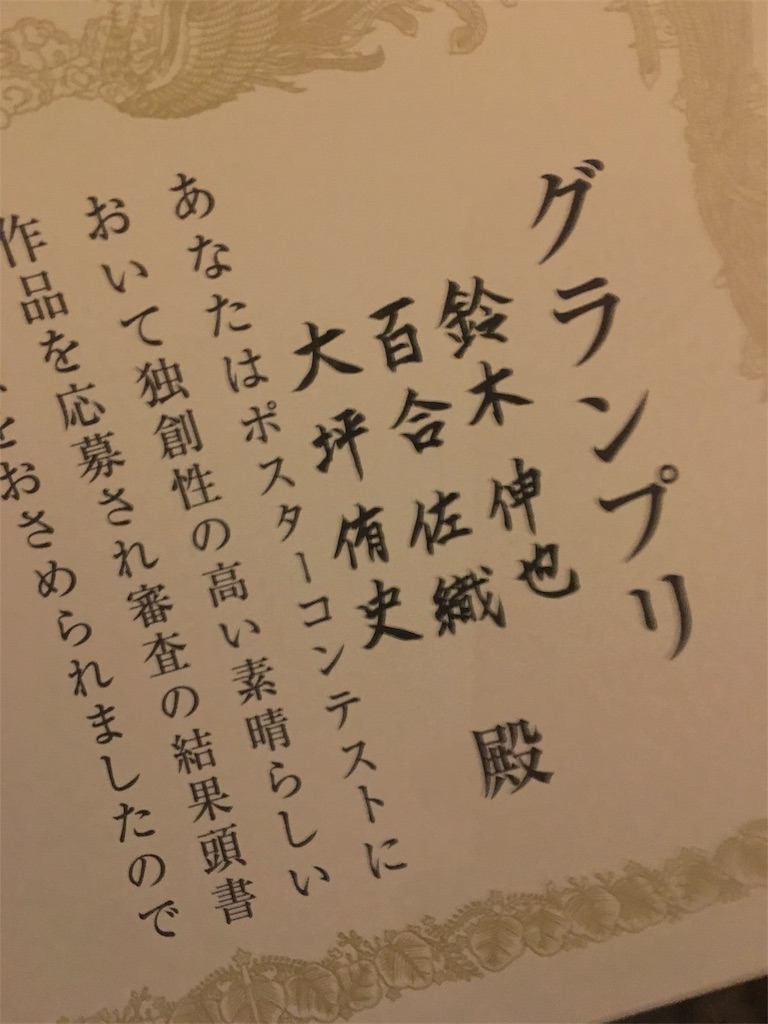 グランプリ
鈴木伸也
百合佐織 殿
大坪侑史
あなたはポスターコンテストに
おいて独創性の高い素晴らしい
作品を応募され審査の結果頭書
をおさめられましたので